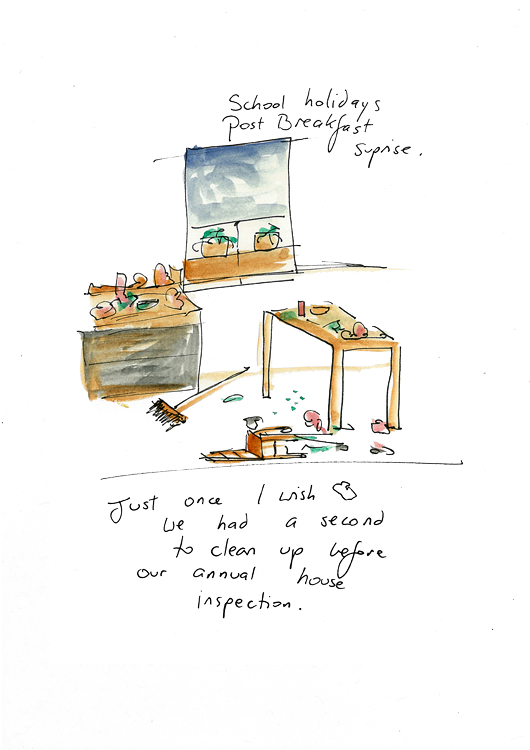 School holidays
Post Breakfast
Suprise.
Just once I wish
we had a second
to clean up before
our annual house
inspection.